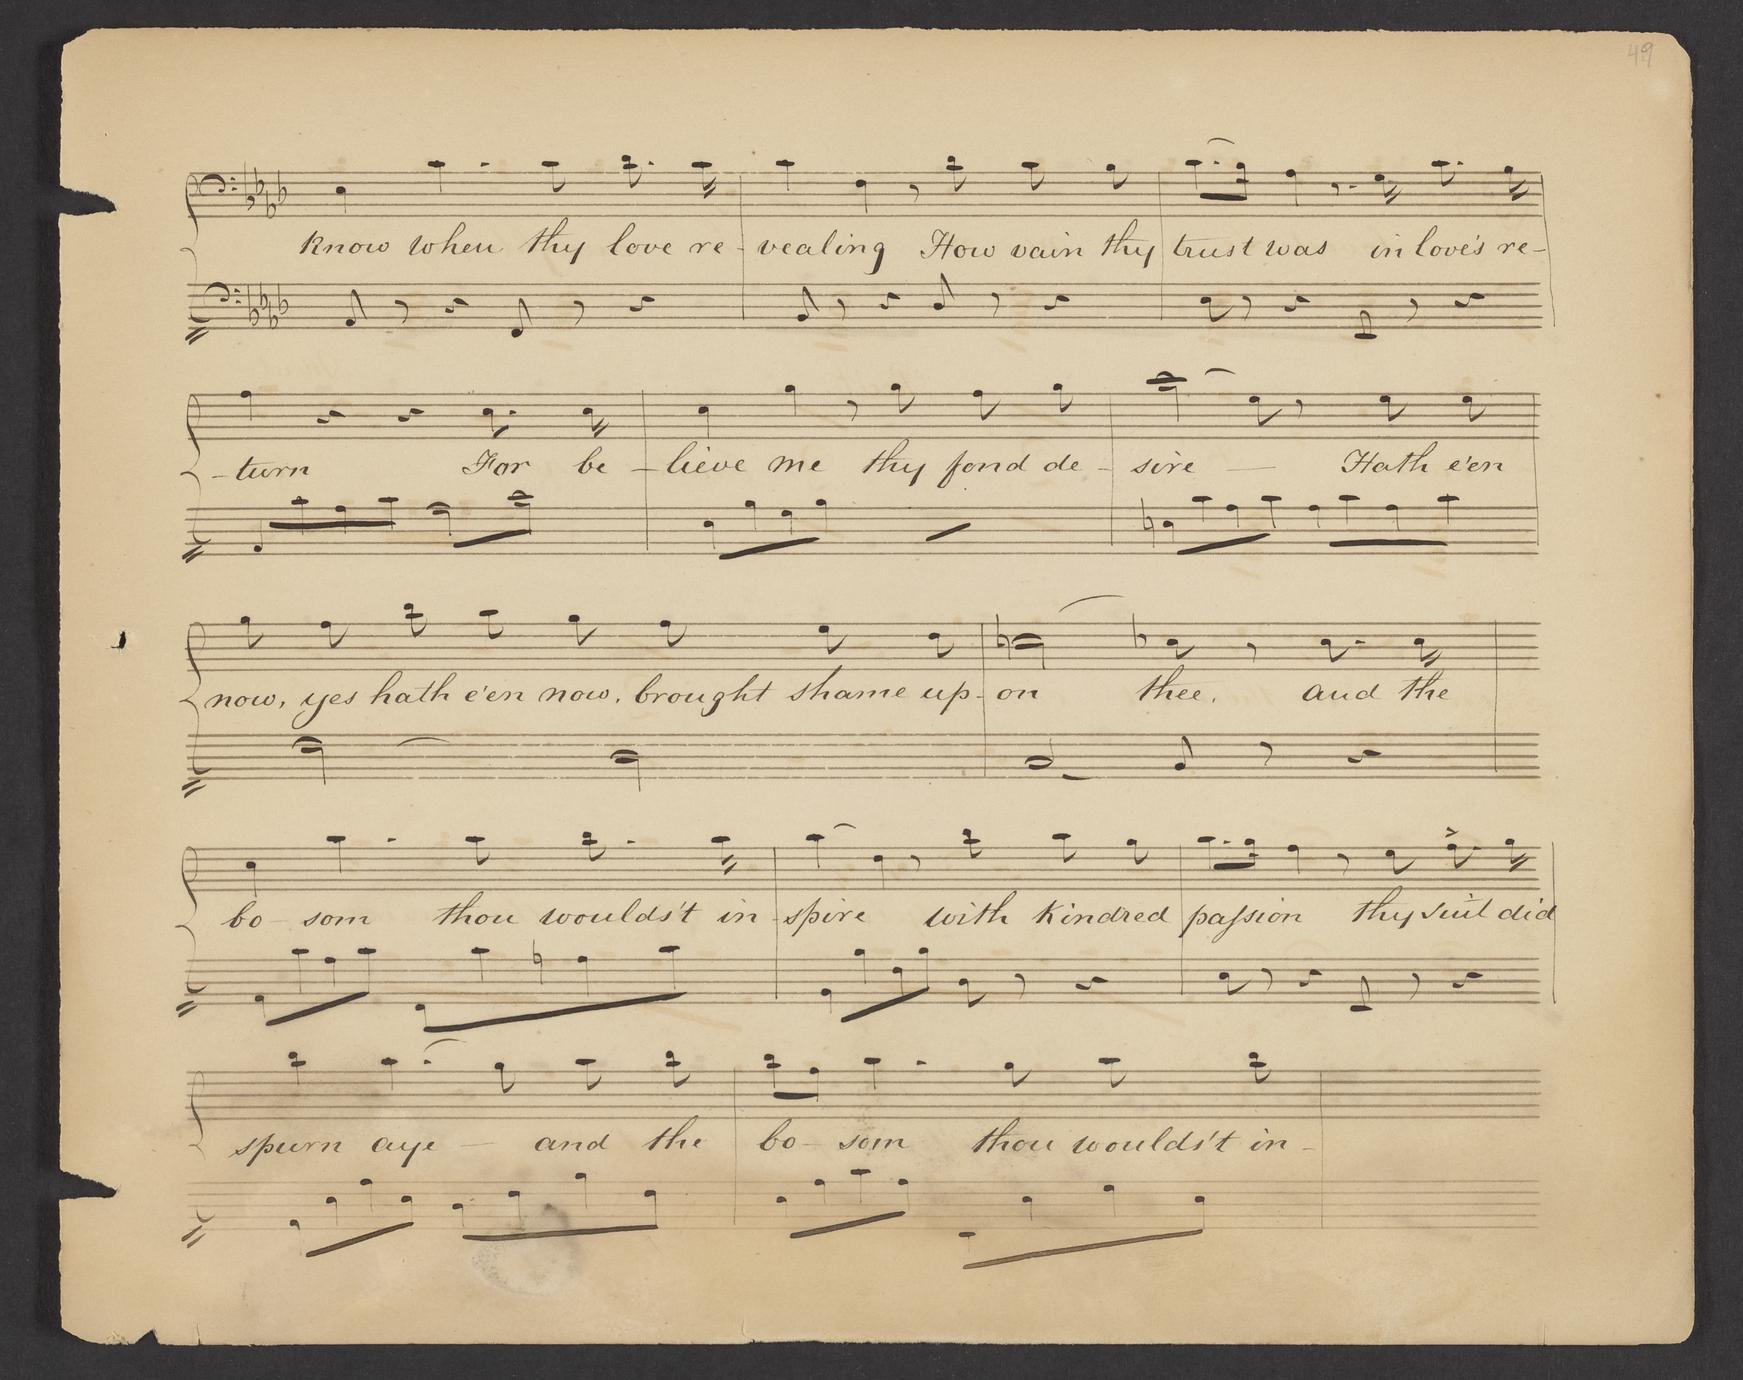 49
know when thy love re- vealing How vain thy trust was in love's re-
-turn For be - lieve me thy fond de - sire — Hath e'en
now, yes hath e'en now, brought shame up- on thee, and the
bo- som thou woulds't in- spire with kindred paſsion thy suit did
spurn aye — and the bo- som thou woulds't in-